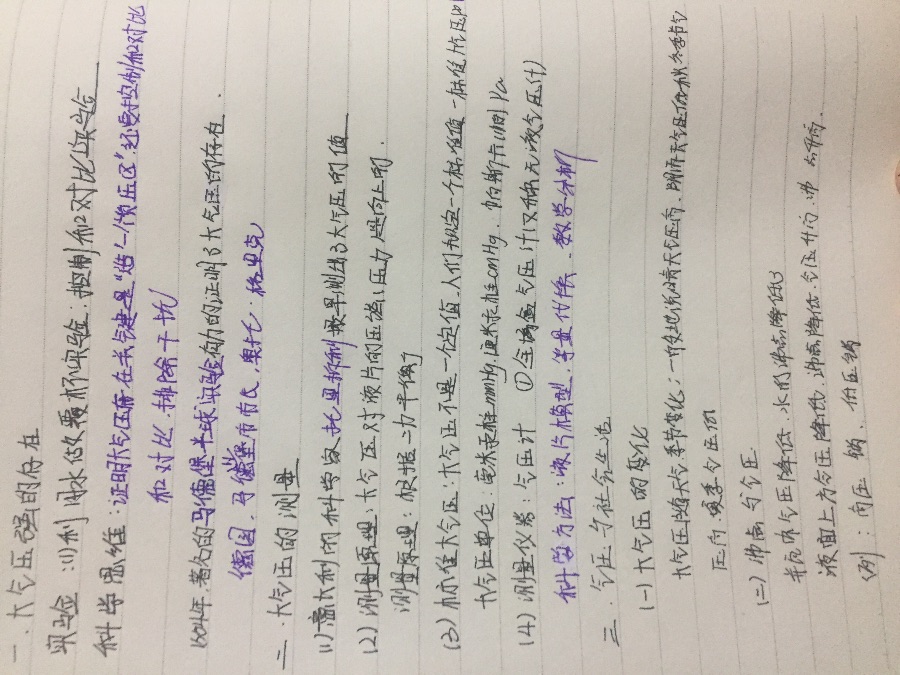 一.大气压强的存在
实验:(1)利用水做覆杯实验:控制和对比实验
科学思维:证明大气压存在关键是“造”一个“负压区”还要控制和对比
和对比.排除干扰
1654年.著名的马德堡半球实验有力的证明了大气压的存在.
德国.马德堡市市民,奥托·格里克
二.大气压的测量
(1)意大利的科学家托里拆利最早测出了大气压的值
(2)测量原理:大气压对液片的压强,压力是向上的.
测量原理:根据二力平衡
(3)标准大气压:大气压不是一个定值.人们规定一个标准值—标准大气压
大气压单位:毫米汞柱mmHg,厘米汞柱cmHg.帕斯卡(帕)Pa
(4)测量仪器:气压计 ①金属盒气压计(又称无液气压计)
科学方法:液片模型.等量代换.数学分析
三.气压与社会生活
(一)大气压的变化
大气压随天气季节变化:一般地说晴天气压高.阴雨天气压低,秋冬季节气
压高.夏季气压低
(二)沸点与气压
气压降低.水的沸点降低
液面上方气压降低.沸点降低.气压升高.沸点升高.
例:高压锅.低压锅